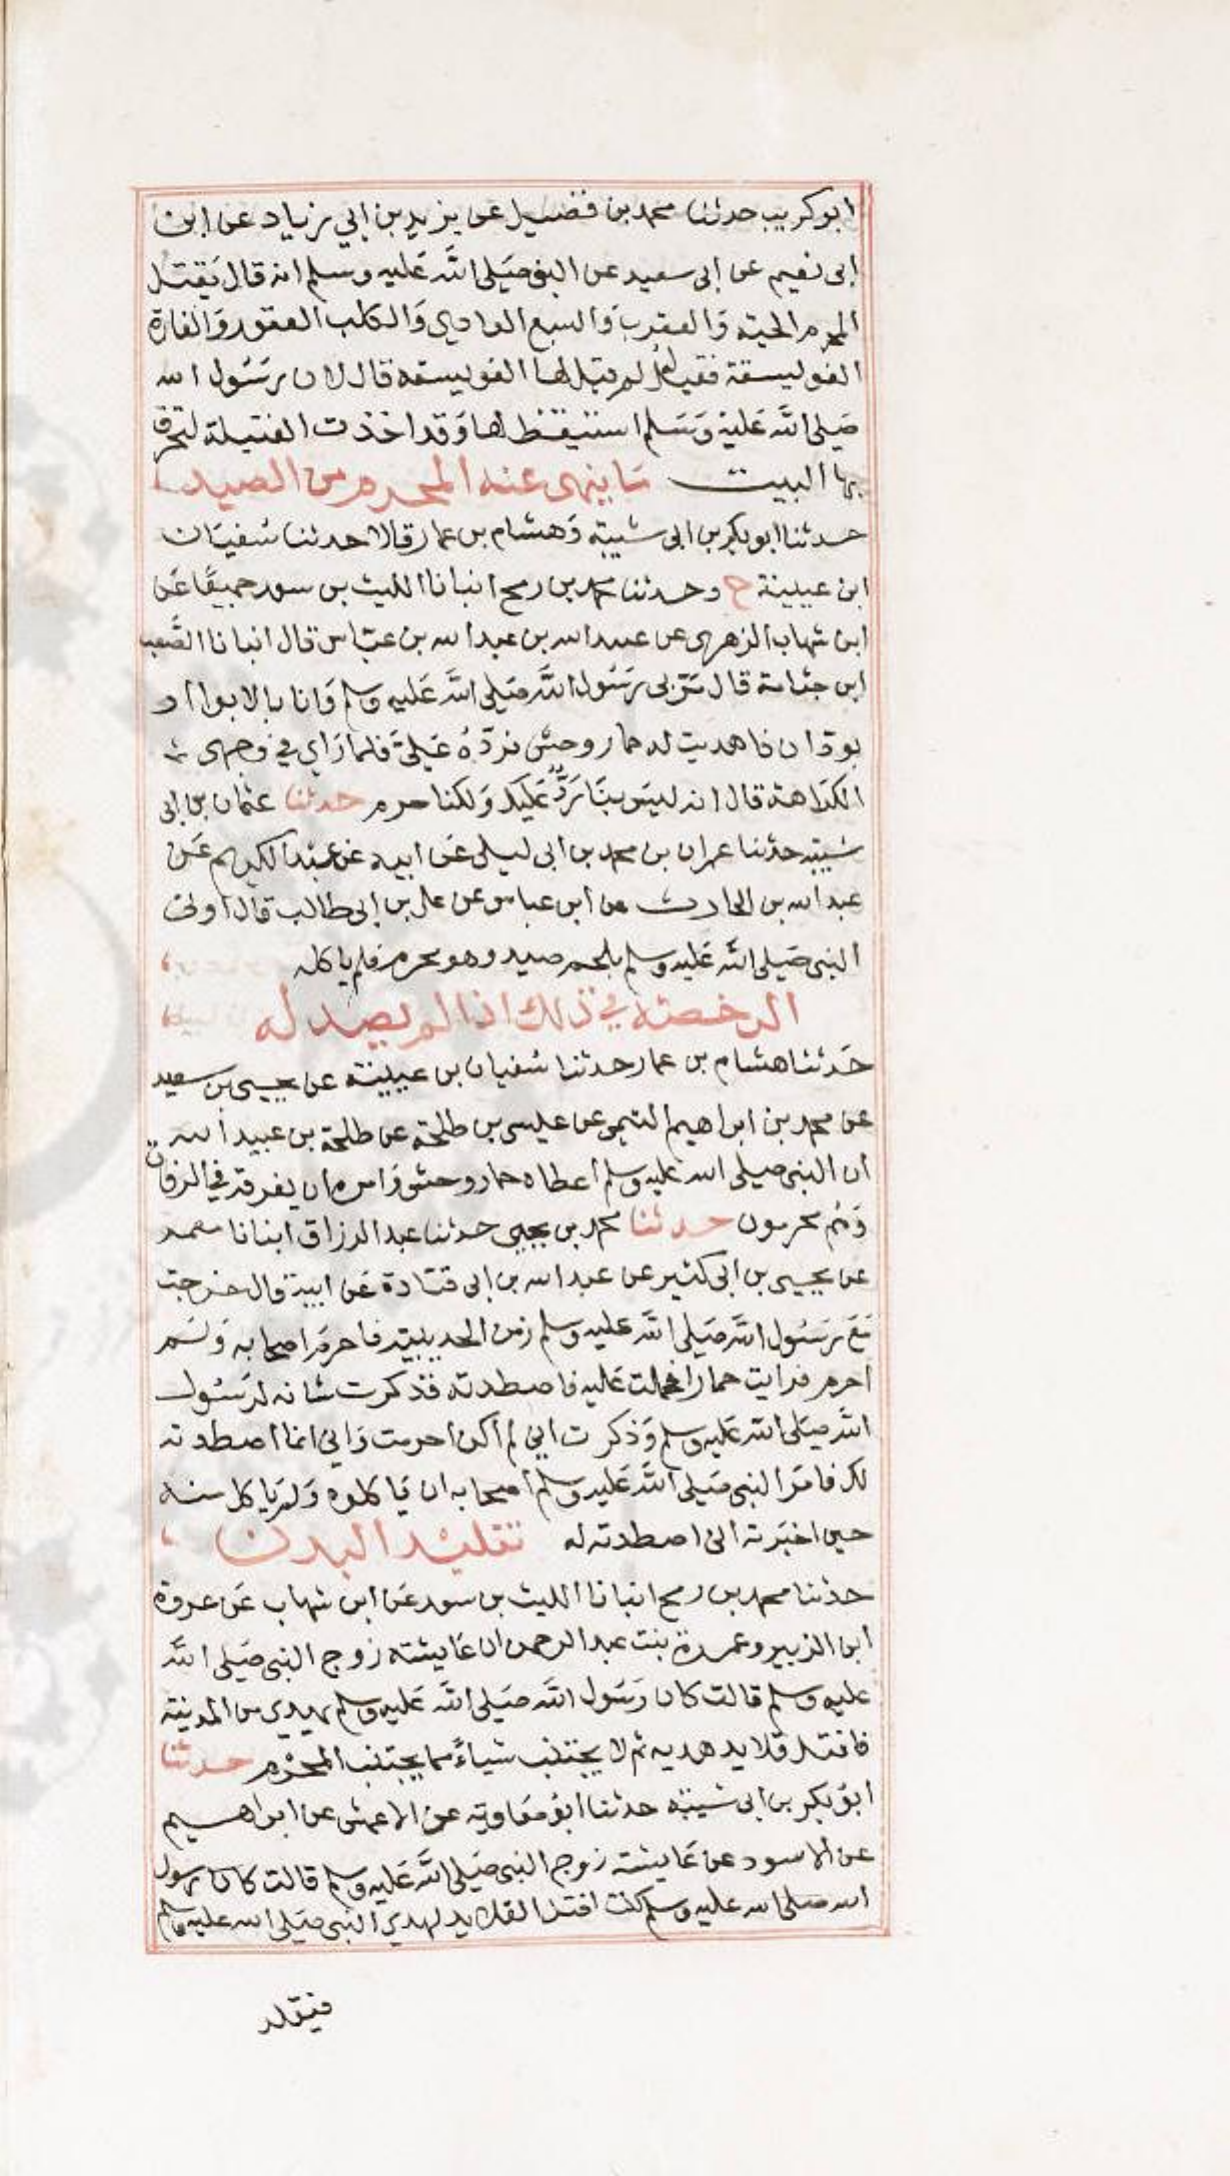 ابوكريب حدثنا محمد بن فضيل عن يزيد بن ابي زياد عن ابن
ابى نعيم عن ابى سعيد عن النبى صَلى اللَّه عَليه وسلم انه قال يَقتل
المحرم الحية وَالعقرب وَالسبع العادي وَالكلب العقور وَالفارة
الفوليسقة فقيل له لم قيل لها الفويسقه قال لان رسُول الله
صَلى اللَّه عَليه وَسَلم استيقظ لها وَقد اخذت الفتيلة لتحرق
بها البيت ما ينهى عنه المحرم من الصيد
حدثنا ابوبكر بن ابى شيبة وَهشام بن عمار قالا حدثنا سُفيان
ابن عيينة ح وحدثنا محمد بن رمح انبانا الليث بن سعد جميعًا عَن
ابن شهاب الزهرى عن عبيد الله بن عبد الله بن عبّاس قال انبانا الصَّعب
ابن جثامة قال مَرّ بى رسُول اللَّه صَلى اللَّه عَليه وسلم وَانا بالابواا و
بودّان فاهديت له حمار وحش فردّهُ عَليّ فلما رَاي في وجهى
الكرَاهة قال انه ليسَ بنَا رَدٌّ عَليكَ وَلكنا حرم حدثنا عثمان بن ابى
شيبة حدثنا عمران بن محمد بن ابى ليلى عَن ابيه عن عبد الكريم عَن
عبد الله بن الحارث عن ابن عباس عن على بن ابى طالب قال اوتى
النبى صَلى اللَّه عَليه وسلم بلحم صيد وهو محرم فلم ياكله
الرخصة في ذلك اذا لم يصد له
حَدثنا هشام بن عمار حدثنا سُفيان بن عيينة عن يحيى بن سعيد
عن محمد بن ابراهيم التيمى عن عيسى بن طلحة عن طلحة بن عبيد الله
ان النبى صلى الله عليه وسلم اعطاه حمار وحش وَامره ان يفرقه في الرفاق
وَهُم محرمون حدثنا محمد بن يحيى حدثنا عبد الرزاق انبانا معمر
عن يحيى بن ابى كثير عن عبد الله بن ابى قتادة عَن ابيه قال خرجت
مَعَ رسُول اللَّه صَلى اللَّه عليه وسلم زمن الحديبية فاحرمَ اصحابه وَلَم
احرم فرايت حمارا فحملت عَليه فاصطدته فذكرت شانه لرَسُول
اللَّه صَلى اللَّه عَليه وسلم وَذكرت اني لم اكن احرمت وَاني انما اصطدته
لك فامَرَ النبى صَلى اللَّه عَليه وسلم اصحابه ان يَاكلوه وَلم يَاكل منه
حين اخبَرته انى اصطدته له تقليد البدن
حدثنا محمد بن رمح انبانا الليث بن سعد عَن ابن شهاب عَن عروة
ابن الزبير وعمرة بنت عبد الرحمن ان عَايشة زوج النبى صَلى اللَّه
عليه وسلم قالت كان رَسُول اللَّه صَلى اللَّه عَليه وسلم يهدي من المدينة
فافتل قلايد هديه ثم لا يجتنب شياءً مما يجتنب المحرم حدثنا
ابوُبكر بن ابى شيبة حدثنا ابوُ معَاوية عن الاعمش عن ابراهيم
عن الاسود عن عَايشة زوج النبى صَلى اللَّه عَليه وسلم قالت كان رسول
الله صلى الله عليه وسلم كنت افتل القلايد لهدي النبى صَلى الله عليه وسلم
فيقلد